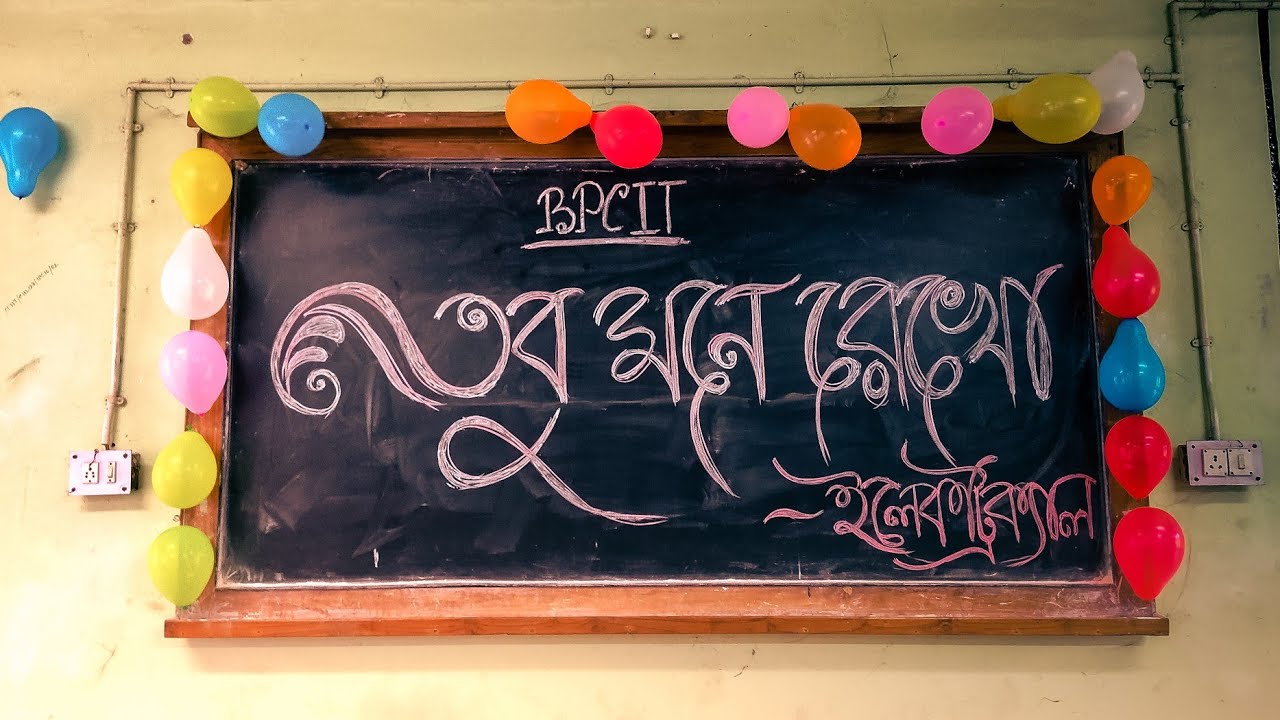 BPCIT
তবু মনে রেখো
~ ইলেকট্রিক্যাল